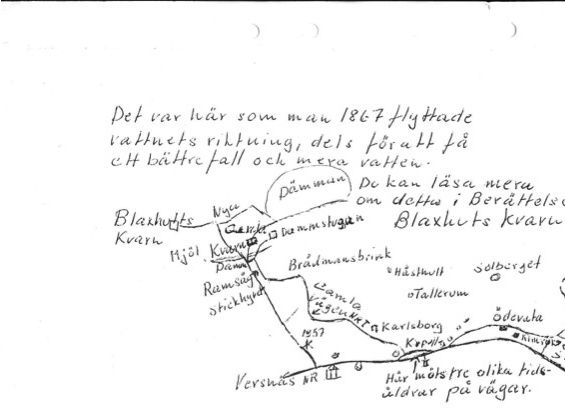 Det var här som man 1867 flyttade
vattnets riktning, dels för att få
ett bättre fall och mera vatten.
Dämman
Du kan läsa mera
om detta i Berättelse
Blaxhults Kvarn
Nya
Blaxhults
Kvarn
Gamla
Dammstugan
Mjöl Kvarn
Damm
Ramsåg
Stickhyvel
Brådmansbrink
Håshult
Solberget
Tallerum
Gamla
vägen
1857
K
Karlsborg
Ödevata
Versnäs NR
Här möts tre olika tids-
åldrar på vägar.